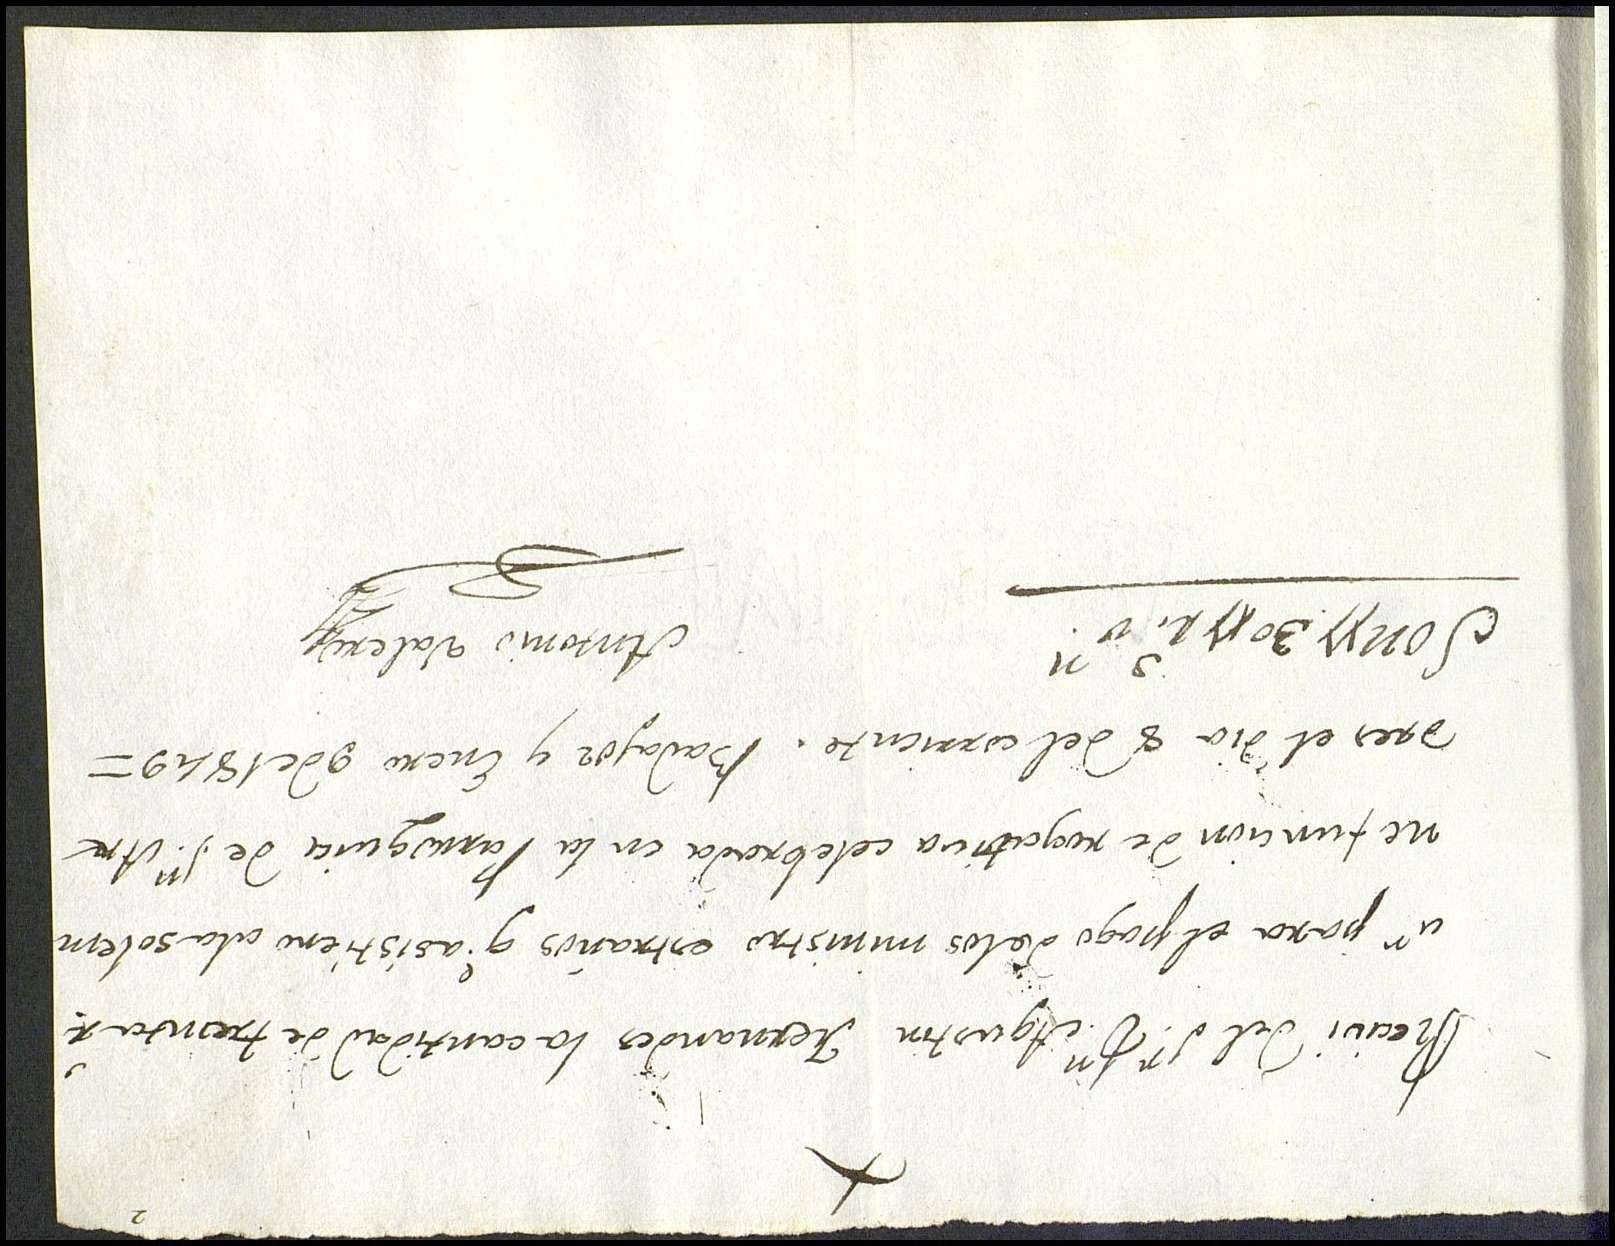 2
Recivi del Sr Dn Agustin Fernandes la cantidad de treinta r.
vn para el pago delos ministro estraños qe asistiero ala solem
ne funcion de rogativa celebrada en la Parroquia de Sn An
dres el dia 8 del corriente. Badajoz y Enero 9 de 1849 =
Antonio Valero
Son 30 rs vn